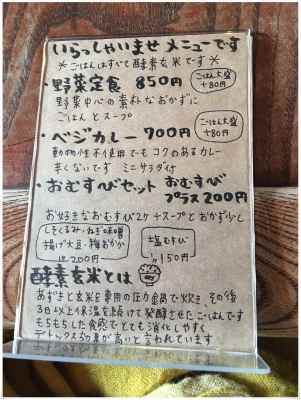 いらっしゃいませ メニューです
※ごはんはすべて酵素玄米です※
・野菜定食 850円
ごはん大盛
+80円
野菜中心の素朴なおかずに
ごはんとスープ
・ベジカレー 700円
ごはん大盛
+80円
動物性不使用でも コクのあるカレー
辛くないです ミニサラダ付
・おむすびセット おむすび
プラス200円
お好きなおむすび2ケ+スープとおかず少し
しそくるみ・ねぎ味噌
揚げ大豆・梅おかか
200円
塩むすび
150円
酵素玄米とは
あずきと玄米を専用の圧力鍋で炊き、その後
3日以上保温を続けて発酵させたごはんです
もちもちした食感でとても消化しやすく
デトックス効果が高いと言われています